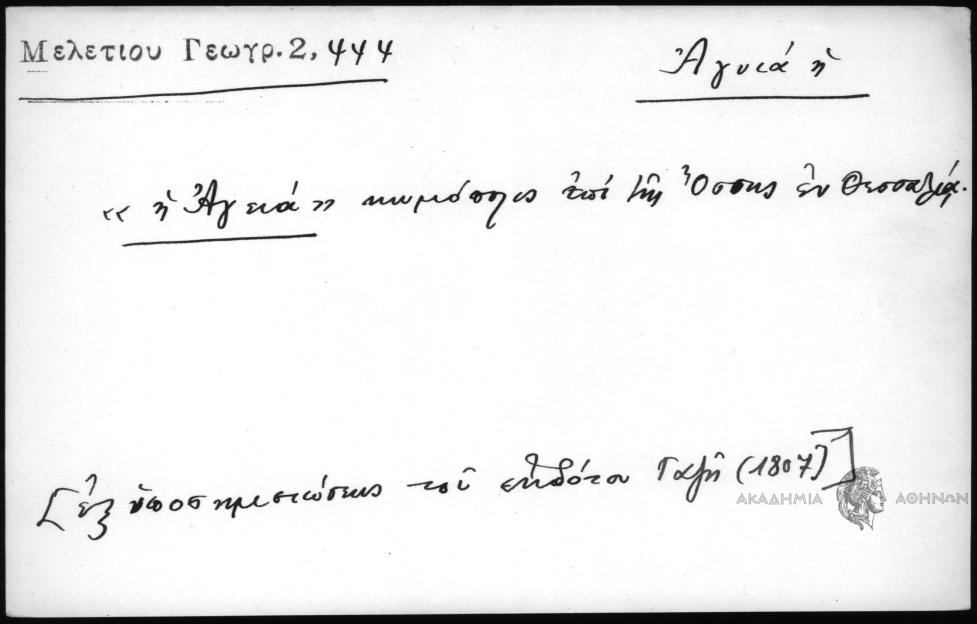 Μελετιου Γεωγρ. 2, 444
Ἁγυιά ἡ
« ἡ Ἁγειά » κωμόπολις ἐπί τῆς Ὄσσης ἐν Θεσσαλίᾳ.
[ἐξ ὑποσημειώσεως τοῦ ἐκδότου Γαζῆ (1807)]
ΑΚΑΔΗΜΙΑ ΑΘΗΝΩΝ